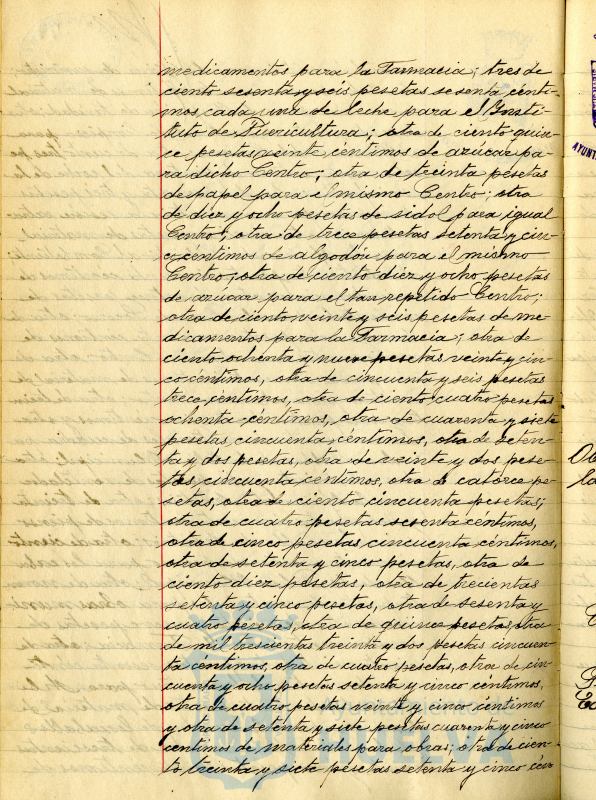 medicamentos para la Farmacia; tres de
ciento sesenta y seis pesetas sesenta cénti-
mos cada una de leche para el Insti-
tuto de Puericultura; otra de ciento quin-
ce pesetas veinte céntimos de azúcar pa-
ra dicho Centro; otra de treinta pesetas
de papel para el mismo Centro; otra
de diez y ocho pesetas de sidol para igual
Centro; otra de trece pesetas setenta y cin-
co céntimos de algodón para el mismo
Centro; otra de ciento diez y ocho pesetas
de azúcar para el tan repetido Centro;
otra de ciento veinte y seis pesetas de me-
dicamentos para la Farmacia; otra de
ciento ochenta y nueve pesetas veinte y cin-
co céntimos, otra de cincuenta y seis pesetas
trece céntimos, otra de ciento cuatro pesetas
ochenta céntimos, otra de cuarenta y siete
pesetas cincuenta céntimos, otra de seten-
ta y dos pesetas, otra de veinte y dos pese-
tas, cincuenta céntimos, otra de catorce pe-
setas, otra de ciento cincuenta pesetas;
otra de cuatro pesetas sesenta céntimos,
otra de cinco pesetas cincuenta céntimos,
otra de setenta y cinco pesetas, otra de
ciento diez pesetas, otra de trecientas
setenta y cinco pesetas, otra de sesenta y
cuatro pesetas, otra de quince pesetas, otra
de mil trescientas treinta y dos pesetas cincuen-
ta céntimos, otra de cuatro pesetas, otra de cin-
cuenta y ocho pesetas setenta y cinco céntimos,
otra de cuatro pesetas veinte y cinco céntimos
y otra de setenta y siete pesetas cuarenta y cinco
céntimos de materiales para obras; otra de cien-
to treinta y siete pesetas setenta y cinco cén-